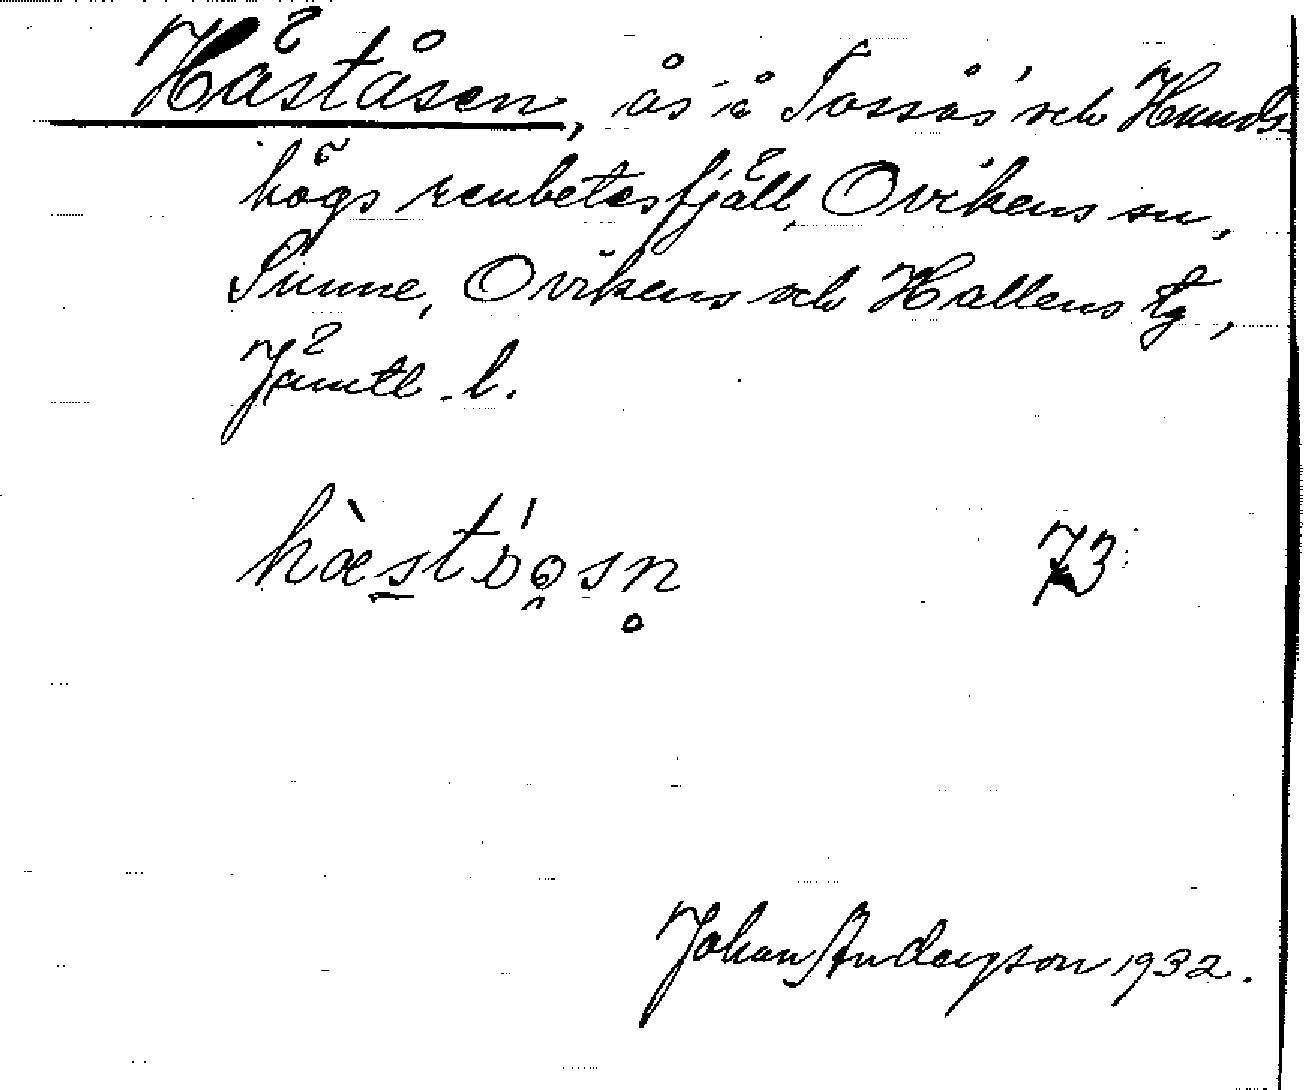 Häståsen, ås å Tossås och Hunds-
högs renbetesfjäll, Ovikens sn,
Sunne, Ovikens och Hallens tg,
Jämtl. l.
hæ̀stóo̯sn̥ 73
Johan Anderson 1932.